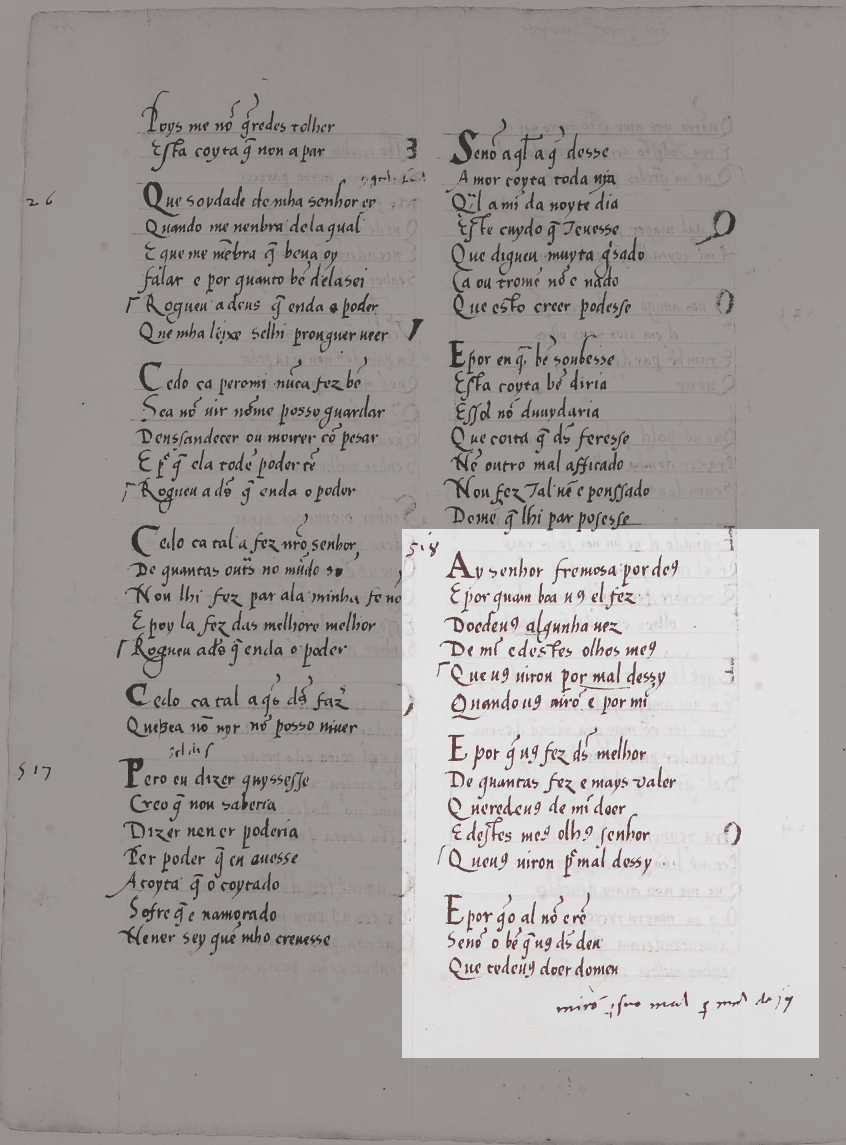 Poys me nõ q̃redes tolher
Esta coyta q̃ non a par
26
Que soydade de mha senhor ey
Quando me nenbra dela qual
E que me nẽbra q̃ bẽ ua oy
falar e por quanto bẽ dela sei
Rogueu a deus q̃ end a o poder
Que mha leixe selhi prouguer ueer
Cedo ca pero mi nũca fez bẽ
Sea nõ uir nõ me posso guardar
Denssandecer ou morrer cõ pesar
E p q̃ ela tod e poder tẽ
Rogueu a ds̃ q̃ end a o poder
Cedo ca tal a fez nr̃o senhor
De quantas out̃s no mũdo sõ
Non lhi fez par a la minha fe nõ
E poy la fez das melhore melhor
Rogueu a ds̃ q̃ end a o poder
Cedo ca tal a q̃s ds̃ faz̃
Que se a nõ uyr nõ posso uiuer
517
Pero eu dizer quysesse
Creo q̃ non saberia
Dizer nen er poderia
Per poder q̃ en ouesse
A coyta q̃ o coytado
Sofre q̃ e namorado
Nen er sey quẽ mho creuesse
Senõ aql̃ a q̃ desse
Amor coyta toda uya
Q̃l a mĩ da noyte dia
Este cuydo q̃ Teuesse
Que digu eu muyta g̃sado
Ca outrome nõ e nado
Que esto creer podesse
E por en q̃ bẽ soubesse
Esta coyta bẽ diria
Essol nõ duuydaria
Que coita q̃ ds̃ fezesse
Nẽ outro mal afficado
Non fez Tal nẽ e penssado
Dome q̃ lhi par posesse
518
Ay senhor fremosa por de9
E por quam boa u9 el fez
Doedeu9 algunha uez
De mĩ e destes olhos me9
Que u9 uiron por mal dessy
Quando u9 uirõ e por mĩ
E por q̃ u9 fez ds̃ melhor
De quantas fez e mays ualer
Queredeu9 de mĩ doer
E destes me9 olh9 senhor
Que u9 uiron p̃ mal dessy
E por q̃ o al nõ e rẽ
Senõ o bẽ q̃ u9 ds̃ deu
Que redeu9 doer do meu